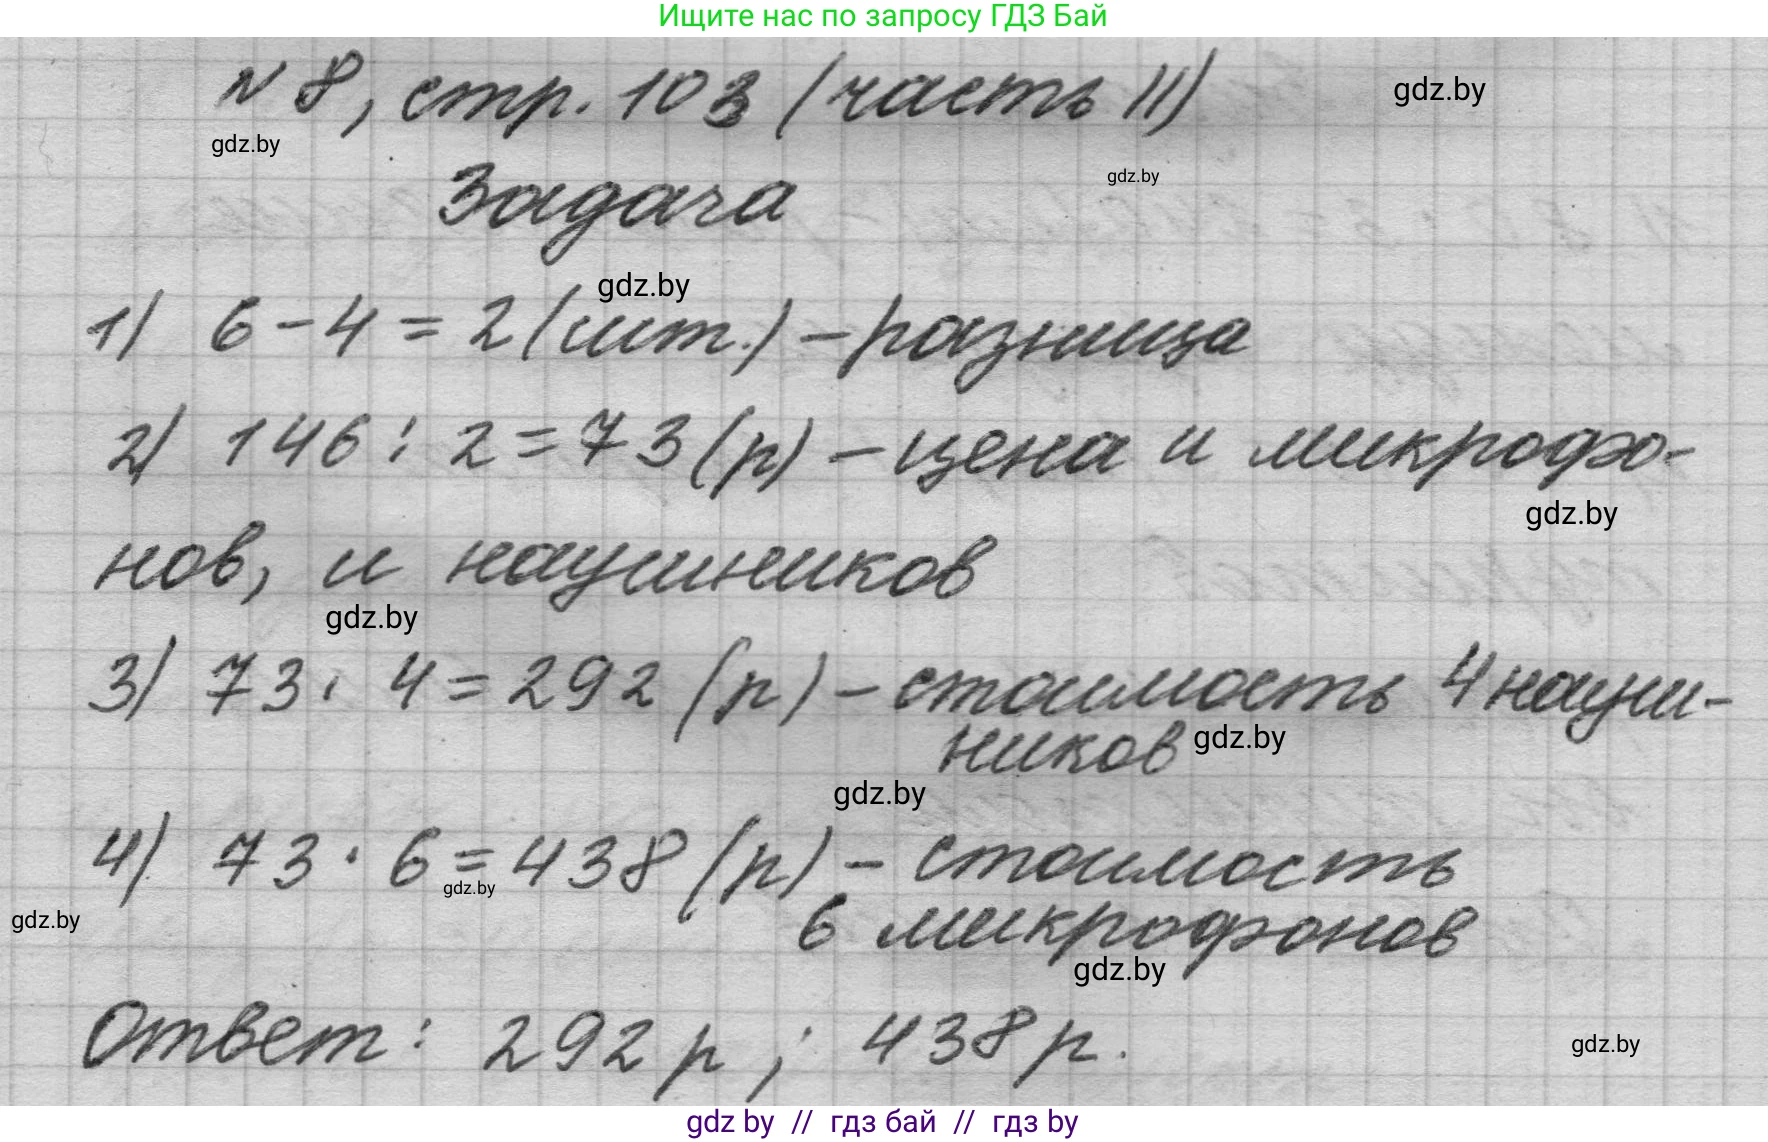 Ищите нас по запросу ГДЗ Бай
N 8, стр. 103 (часть II)
gdz.by
gdz.by
Задача
gdz.by
gdz.by
1) 6 - 4 = 2 (шт.) - разница
2) 146 : 2 = 73 (р) - цена и микрофо-
gdz.by
нов, и наушников
gdz.by
3) 73 · 4 = 292 (р) - стоимость 4 науш-
ников
gdz.by
gdz.by
4) 73 · 6 = 438 (р) - стоимость
gdz.by
gdz.by
6 микрофонов
gdz.by
Ответ: 292 р ; 438 р.
gdz.by
gdz by // гдз бай // гдз by